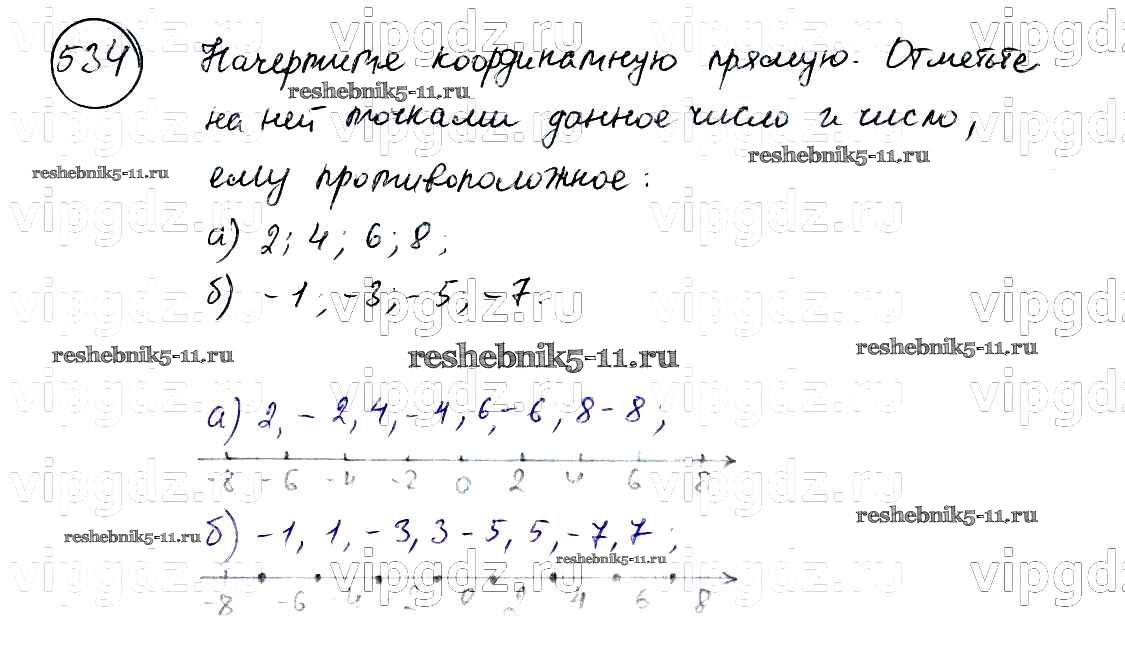 534 Начертите координатную прямую. Отметьте
на ней точками данное число и число,
ему противоположное:
а) 2; 4; 6; 8;
б) -1; -3; -5; -7.
а) 2, -2, 4, -4, 6, -6, 8 -8;
-8 -6 -4 -2 0 2 4 6 8
б) -1, 1, -3, 3 -5, 5, -7, 7;
-8 -6 -4 -2 0 2 4 6 8
vipgdz.ru
reshebnik5-11.ru